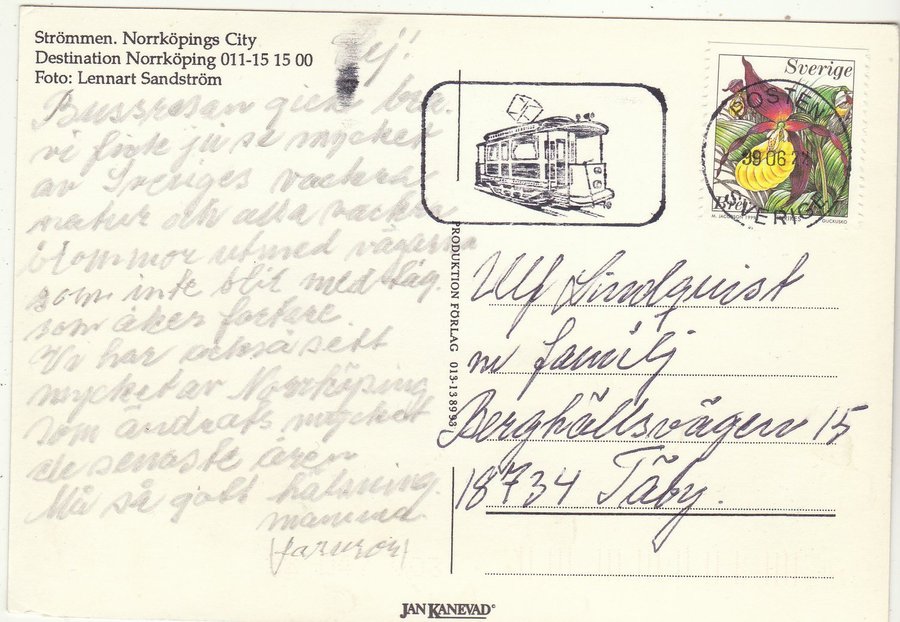 Strömmen. Norrköpings City
Destination Norrköping 011-15 15 00
Foto: Lennart Sandström
Hej!
Bussresan gick bra.
vi fick ju se mycket
av Sveriges vackra
natur och alla vackra
blommor utmed vägarna
som inte blir med tåg.
som åker fortare.
Vi har också sett
mycket av Norrköping
som ändrats mycket
de senaste åren
Må så gott hälsning
mamma
(farmor)
PRODUKTION FÖRLAG 013-13 8993
Sverige
Brev
GUCKUSKO
POSTEN
99 06
SVERIGE
Ulf Lindquist
m familj
Berghällsvägen 15
18734 Täby.
JAN KANEVAD